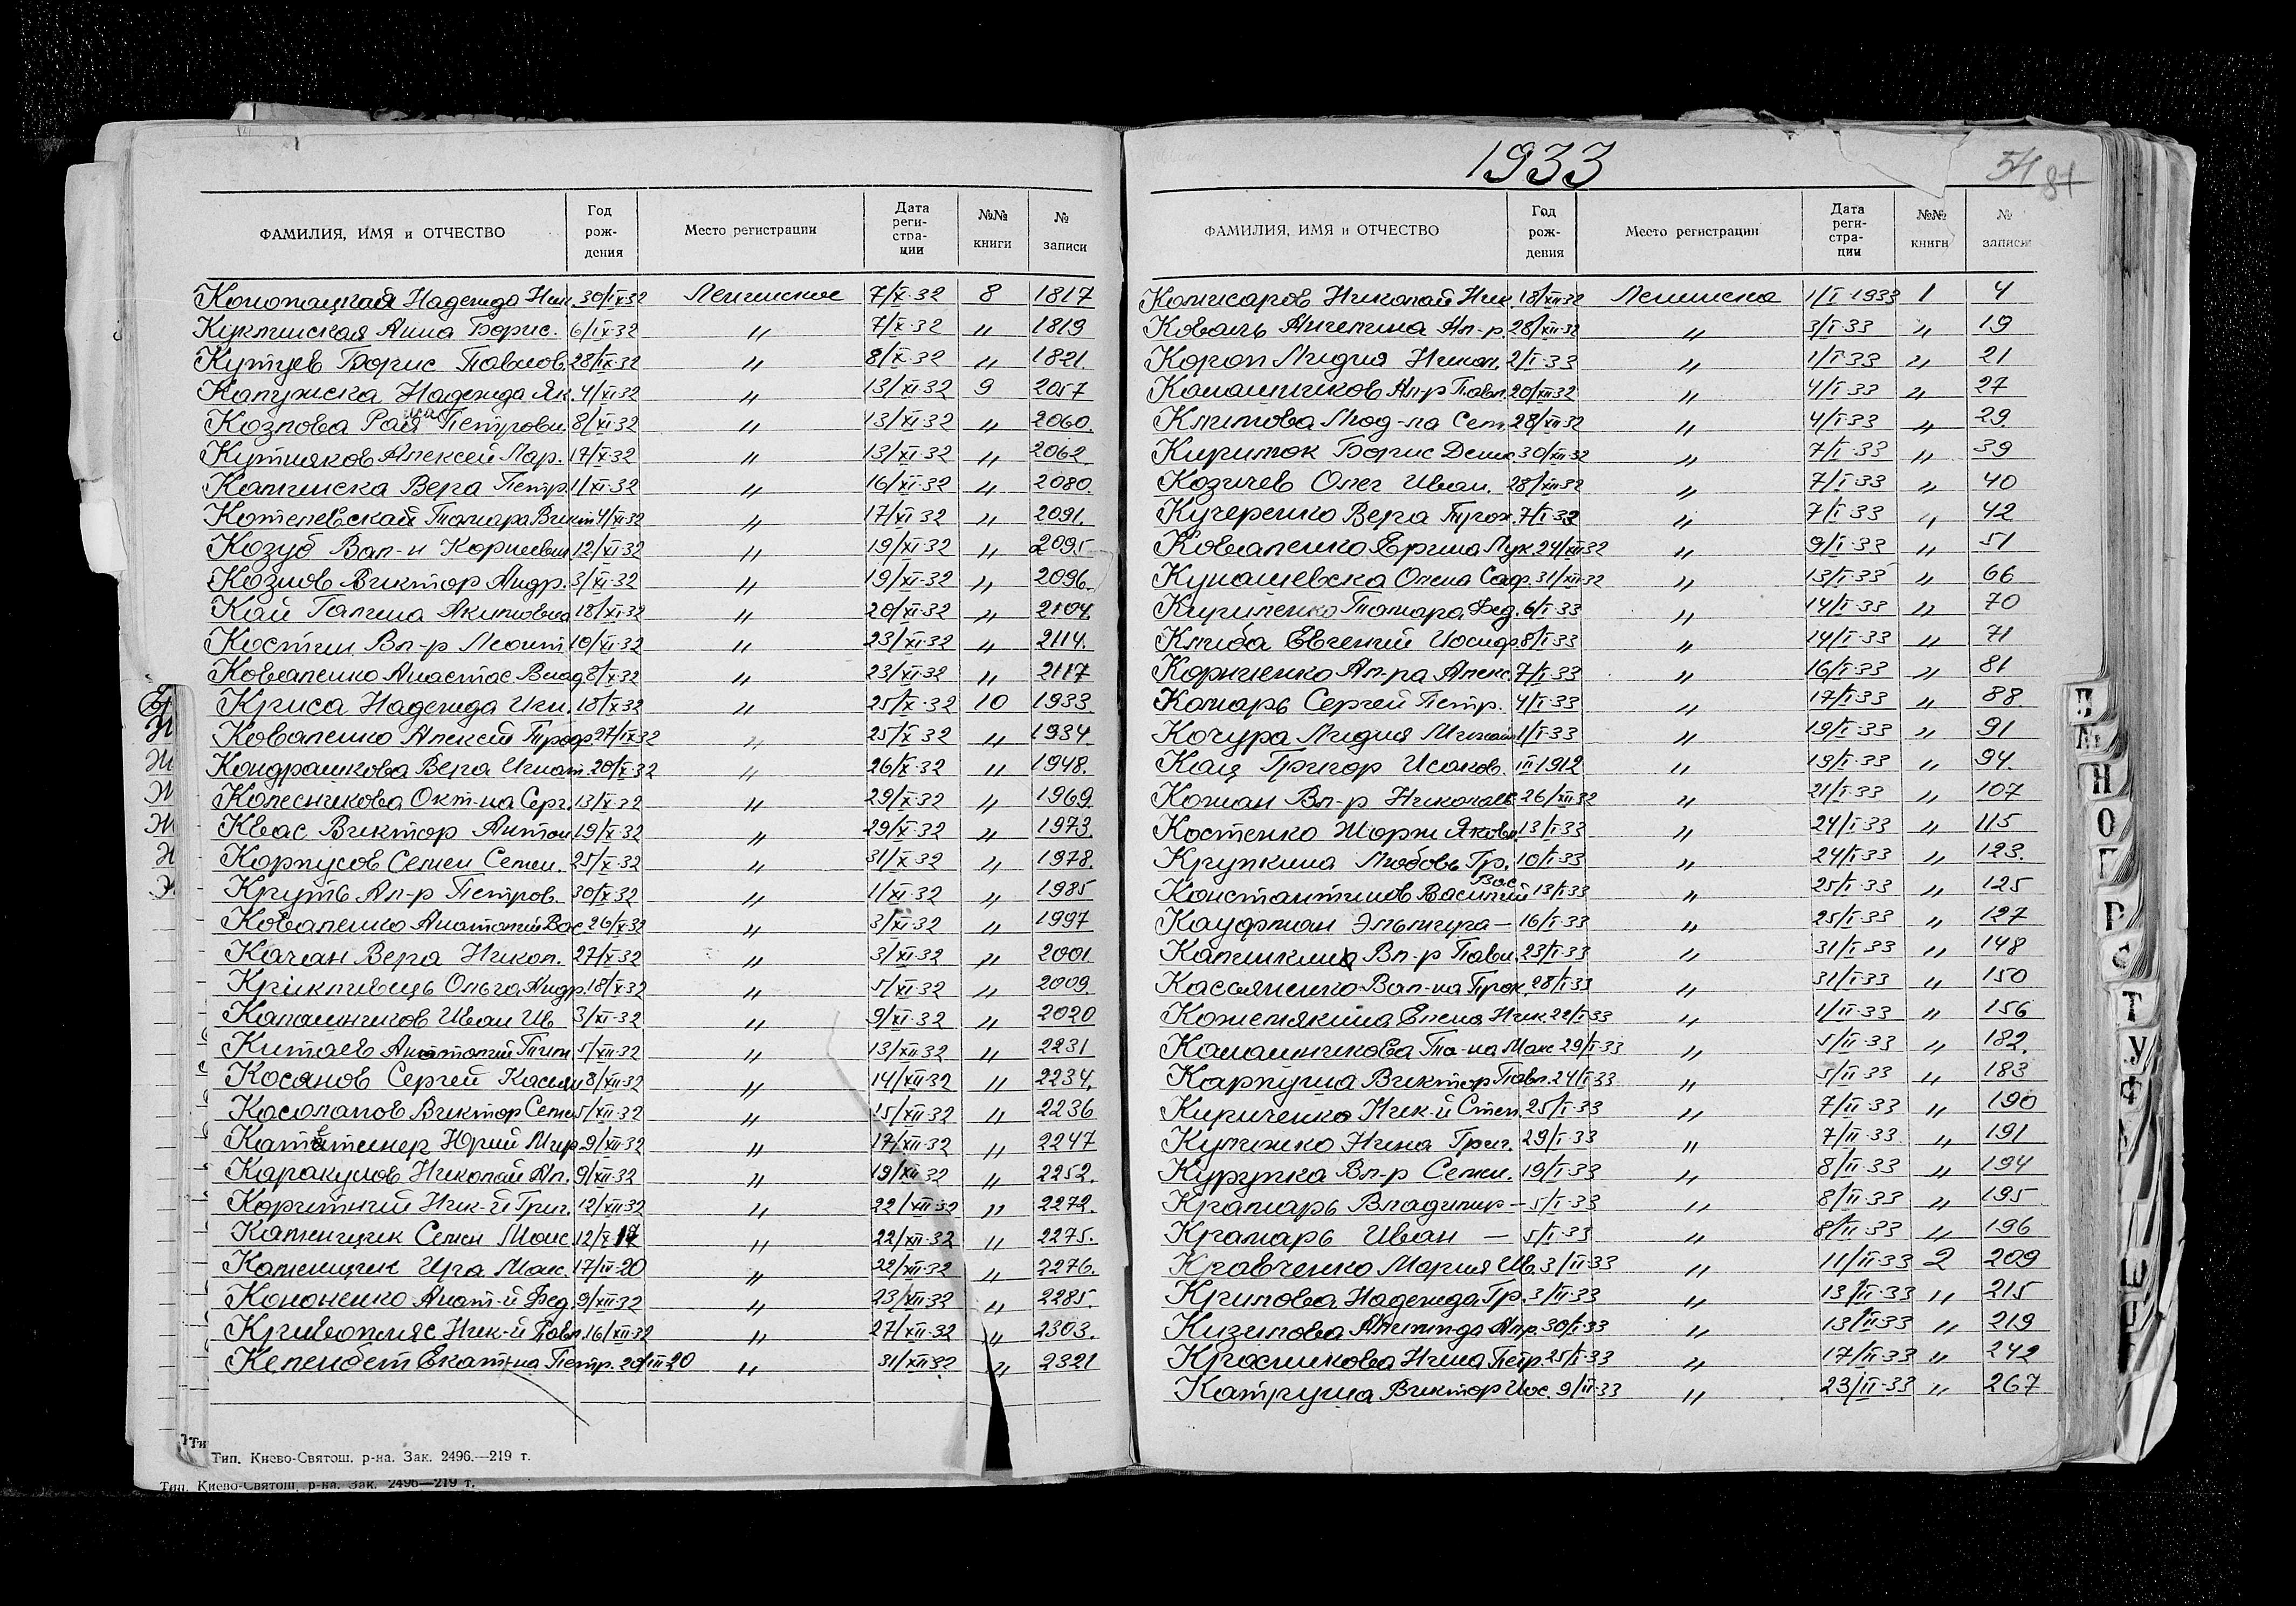 ФАМИЛИЯ, ИМЯ и ОТЧЕСТВО Год рождения Место регистрации Дата регистрации №№ книги № записи
Конотацкая Надежда Ник. 30/IX 32 Ленинское 7/X-32 8 1817
Куклинская Анна Борис. 6/IX-32 " 7/X-32 " 1819
Кутуев Борис Павлов. 28/IX-32 " 8/X-32 " 1821.
Калужска Надежда Як. 4/XI 32 " 13/XI-32 9 2057
Козлова Раиса Петровн. 8/XI 32 " 13/XI 32 " 2060.
Кутняков Алексей Лар. 17/X-32 " 13/XI-32 " 2062.
Калинска Вера Петр. 1/XI-32 " 16/XI-32 " 2080.
Котелевская Тамара Викт 4/XI-32 " 17/XI 32 " 2091.
Козуб Вал-н Корнеевич 12/XI-32 " 19/XI-32 " 2095
Козлов Виктор Андр. 3/XI-32 " 19/XI-32 " 2096.
Кай Галина Акимовна 18/XI-32 " 20/XI-32 " 2104.
Костин Вл-р Леонт 10/XI-32 " 23/XI-32 " 2114.
Коваленко Анастас Влад 8/X-32 " 23/XI-32 " 2117
Криса Надежда Ник. 18/X-32 " 25/X-32 10 1933.
Коваленко Алексей Троф. 27/IX 32 " 25/X 32 " 1934.
Кондрашкова Вера Игнат. 20/X-32 " 26/X-32 " 1948.
Колесникова Окт-на Серг. 13/X-32 " 29/X-32 " 1969.
Квас Виктор Антон 19/X-32 " 29/X-32 " 1973.
Корпусов Семен Семен. 25/X-32 " 31/X-32 " 1978.
Круть Ал-р Петров. 30/X-32 " 1/XI-32 " 1985
Коваленко Анатолий Вас 26/X-32 " 3/XI-32 " 1997
Качан Вера Никол. 27/X-32 " 3/XI-32 " 2001
Крікливець Ольга Андр. 18/X-32 " 5/XI-32 " 2009.
Калашников Иван Ив 3/XI-32 " 9/XI-32 " 2020
Китаев Анатолий Тим 5/XII-32 " 13/XII-32 " 2231
Косянов Сергей Касьян 8/XII-32 " 14/XII-32 " 2234.
Косолапов Виктор Семен 5/XII-32 " 15/XII-32 " 2236
Юрий Мир. 9/XII-32 " 17/XII-32 " 2247
Каракулов Николай Ал. 9/XII-32 " 19/XII-32 " 2252.
Коритний Ник-й Григ. 12/XII-32 " 22/XII-32 " 2272.
Каменщик Семен Моис. 12/X " 22/XII-32 " 2275.
Каменщик Ира Моис. 17/II-20 " 22/XII-32 " 2276.
Кононенко Анат-й Фед. 9/XII-32 " 23/XII-32 " 2285.
Кривопляс Ник-й Павл. 16/XII-32 " 27/XII-32 " 2303.
Келенбет Екат-на Петр. 20/III-20 " 31/XII-32 " 2321
Тип. Киево-Святош. р-на. Зак. 2496.—219 т.
Тип. Киево-Святош. р-на. Зак. 2496—219 т.
1933
54 81
ФАМИЛИЯ, ИМЯ и ОТЧЕСТВО Год рождения Место регистрации Дата регистрации №№ книги № записи
Комисаров Николай Ник. 18/XII-32 Лениńska 1/I-1933 1 4
Коваль Ангелина Ал-р. 28/XII-32 " 3/I-33 " 19
Короп Лидия Никол. 2/I-33 " 1/I-33 " 21
Калашников Ал-р Павл. 20/XII-32 " 4/I-33 " 27
Климова Люд-ла Сем. 28/XII-32 " 4/I-33 " 29.
Кирилюк Борис Денис. 30/XII-32 " 7/I-33 " 39
Козичев Олег Иван. 28/XII-32 " 7/I-33 " 40
Кучеренко Вера Трох. 7/I-33 " 7/I-33 " 42
Коваленко Ерина Лук. 24/XII 32 " 9/I-33 " 51
Кунашевска Олена Саф. 31/XII-32 " 13/I-33 " 66
Кириленко Тамара Фед. 6/I-33 " 14/I-33 " 70
Клиба Евгений Иосиф 8/I-33 " 14/I-33 " 71
Корниенко Ал-ра Алекс 7/I-33 " 16/I-33 " 81
Комарь Сергей Петр. 4/I-33 " 17/I-33 " 88.
Кочура Лидия Михайл 1/I-33 " 19/I-33 " 91
Кац Григор Исаков. III 1912 " 19/I-33 " 94.
Коман Вл-р Николаев. 26/XII-32 " 21/I-33 " 107
Костенко Жорж Яковл. 13/I-33 " 24/I-33 " 115
Крупкина Любовь Гр. 10/I-33 " 24/I-33 " 123.
Константинов Василий Вас 13/I-33 " 25/I-33 " 125
Кауфман Эльмира — 16/I-33 " 25/I-33 " 127
Вл-р Павл. 23/I-33 " 31/I-33 " 148
Касьяненко Вал-на Прок. 28/I-33 " 31/I-33 " 150
Кожемякина Елена Ник. 22/I-33 " 1/II-33 " 156
Калашникова Та-на Макс 29/I-33 " 5/II-33 " 182.
Карпуша Виктор Павл. 24/I-33 " 5/II-33 " 183
Кириченко Ник-й Степ. 25/I-33 " 7/II-33 " 190
Кулижко Нина Григ. 29/I-33 " 7/II-33 " 191
Курупка Вл-р Семен. 19/I-33 " 8/II-33 " 194
Крамарь Владимир — 5/I-33 " 8/II-33 " 195
Крамарь Иван — 5/I-33 " 8/II-33 " 196
Кравченко Мария Ив. 3/II-33 " 11/II-33 2 209
Крилова Надежда Гр. 3/II-33 " 13/II-33 " 215
Кизилова Ал-р. 30/I-33 " 13/II-33 " 219
Красникова Нина Петр. 25/I-33 " 17/II-33 " 242
Катруша Виктор Иос. 9/II-33 " 23/II-33 " 267
Н
О
П
Р
С
Т
У
Ф